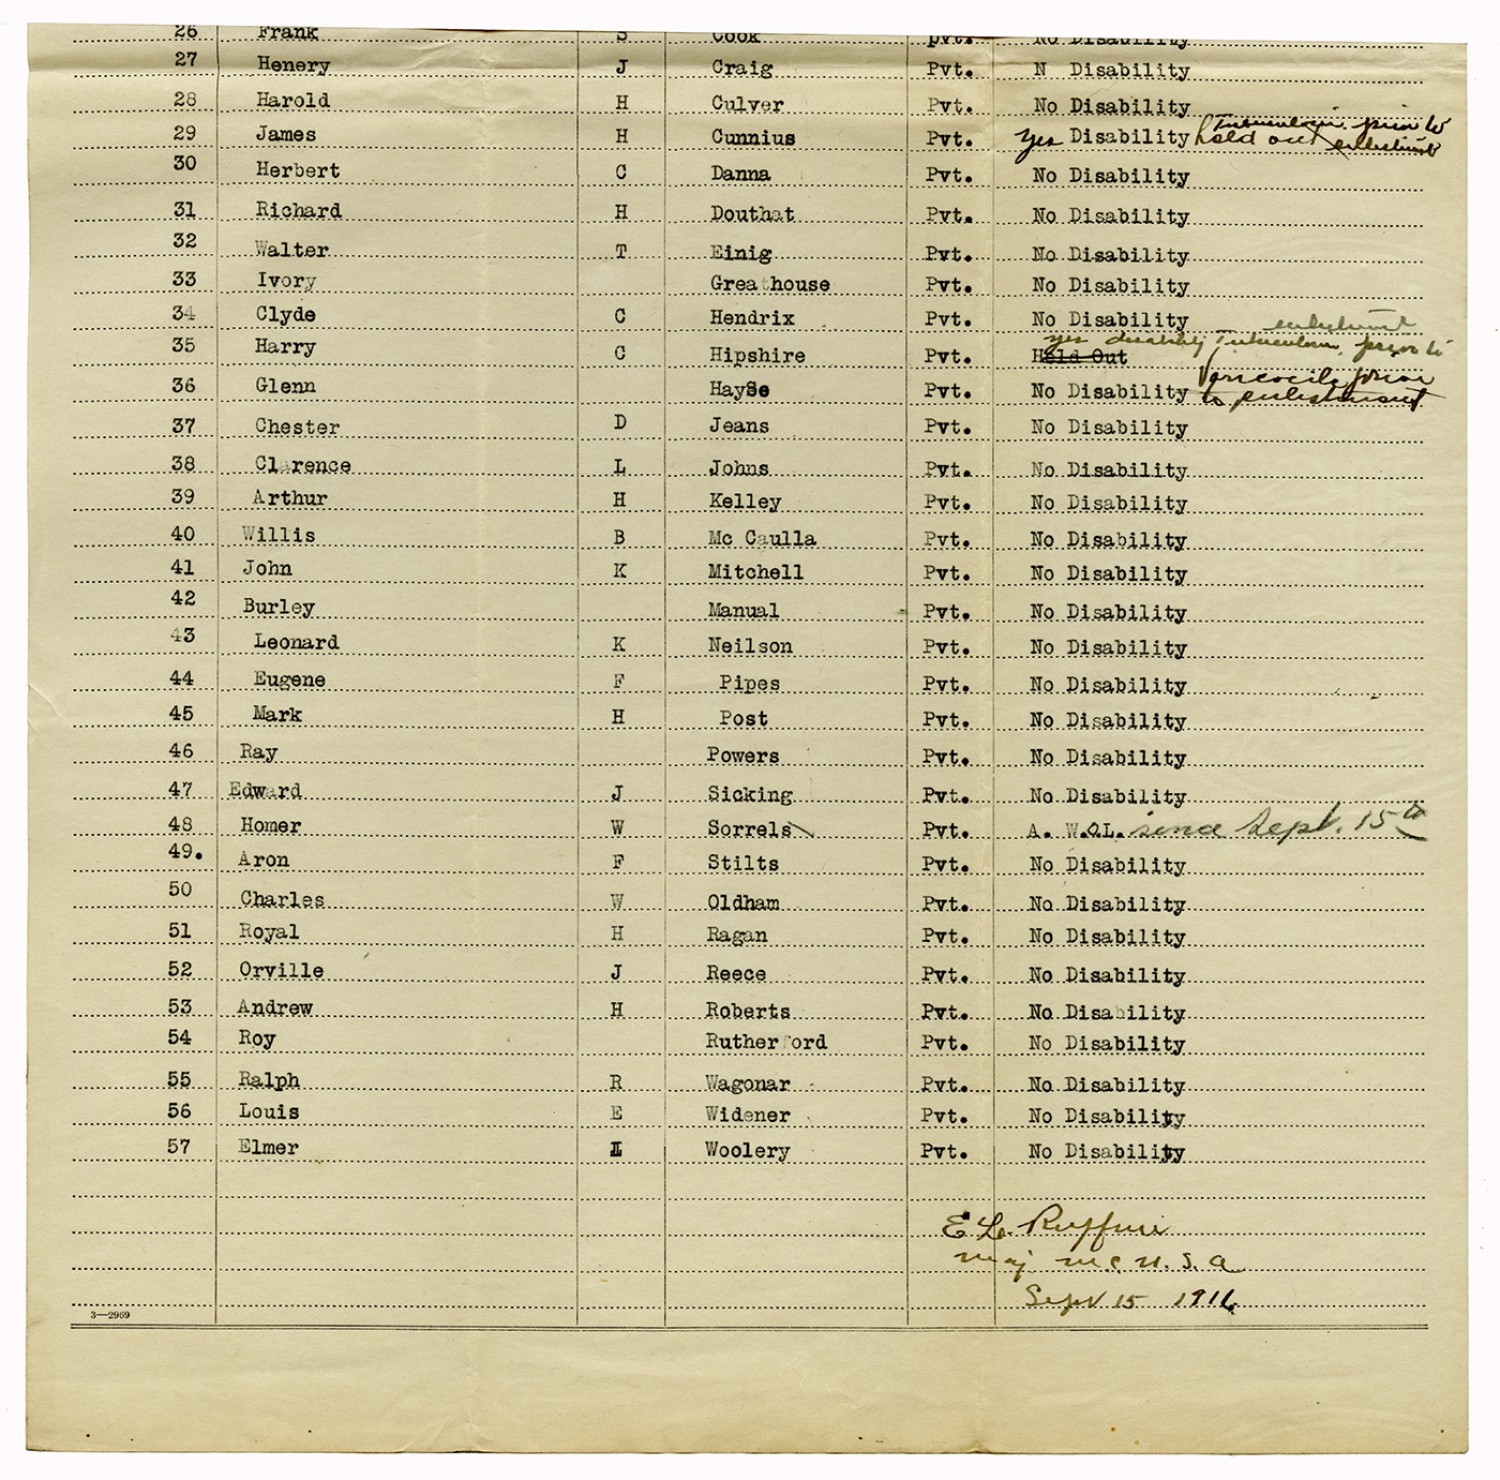 26 Frank S Cook Pvt. No Disability
27 Henery J Craig Pvt. N Disability
28 Harold H Culver Pvt. No Disability
Tuberculosis prior to
29 James H Cunnius Pvt. Yes Disability hold out enlistment
30 Herbert C Danna Pvt. No Disability
31 Richard H Douthat Pvt. No Disability
32 Walter T Einig Pvt. No Disability
33 Ivory Greathouse Pvt. No Disability
34 Clyde C Hendrix Pvt. No Disability
enlistment
yes disability Tuberculosis prior to
35 Harry C Hipshire Pvt. Hold Out
Varicocile prior
36 Glenn HaySe Pvt. No Disability to enlistment
37 Chester D Jeans Pvt. No Disability
38 Clarence L Johns Pvt. No Disability
39 Arthur H Kelley Pvt. No Disability
40 Willis B Mc Caulla Pvt. No Disability
41 John K Mitchell Pvt. No Disability
42 Burley Manual Pvt. No Disability
43 Leonard K Neilson Pvt. No Disability
44 Eugene F Pipes Pvt. No Disability
45 Mark H Post Pvt. No Disability
46 Ray Powers Pvt. No Disability
47 Edward J Sicking Pvt. No Disability
48 Homer W Sorrels Pvt. A. W.O.L. since Sept. 15th
49. Aron F Stilts Pvt. No Disability
50 Charles W Oldham Pvt. No Disability
51 Royal H Ragan Pvt. No Disability
52 Orville J Reece Pvt. No Disability
53 Andrew H Roberts Pvt. No Disability
54 Roy Rutherford Pvt. No Disability
55 Ralph R Wagonar Pvt. No Disability
56 Louis E Widener Pvt. No Disability
57 Elmer I Woolery Pvt. No Disability
E L. Ruffner
Maj M.C. U.S.A
Sept 15 1916
3—2969